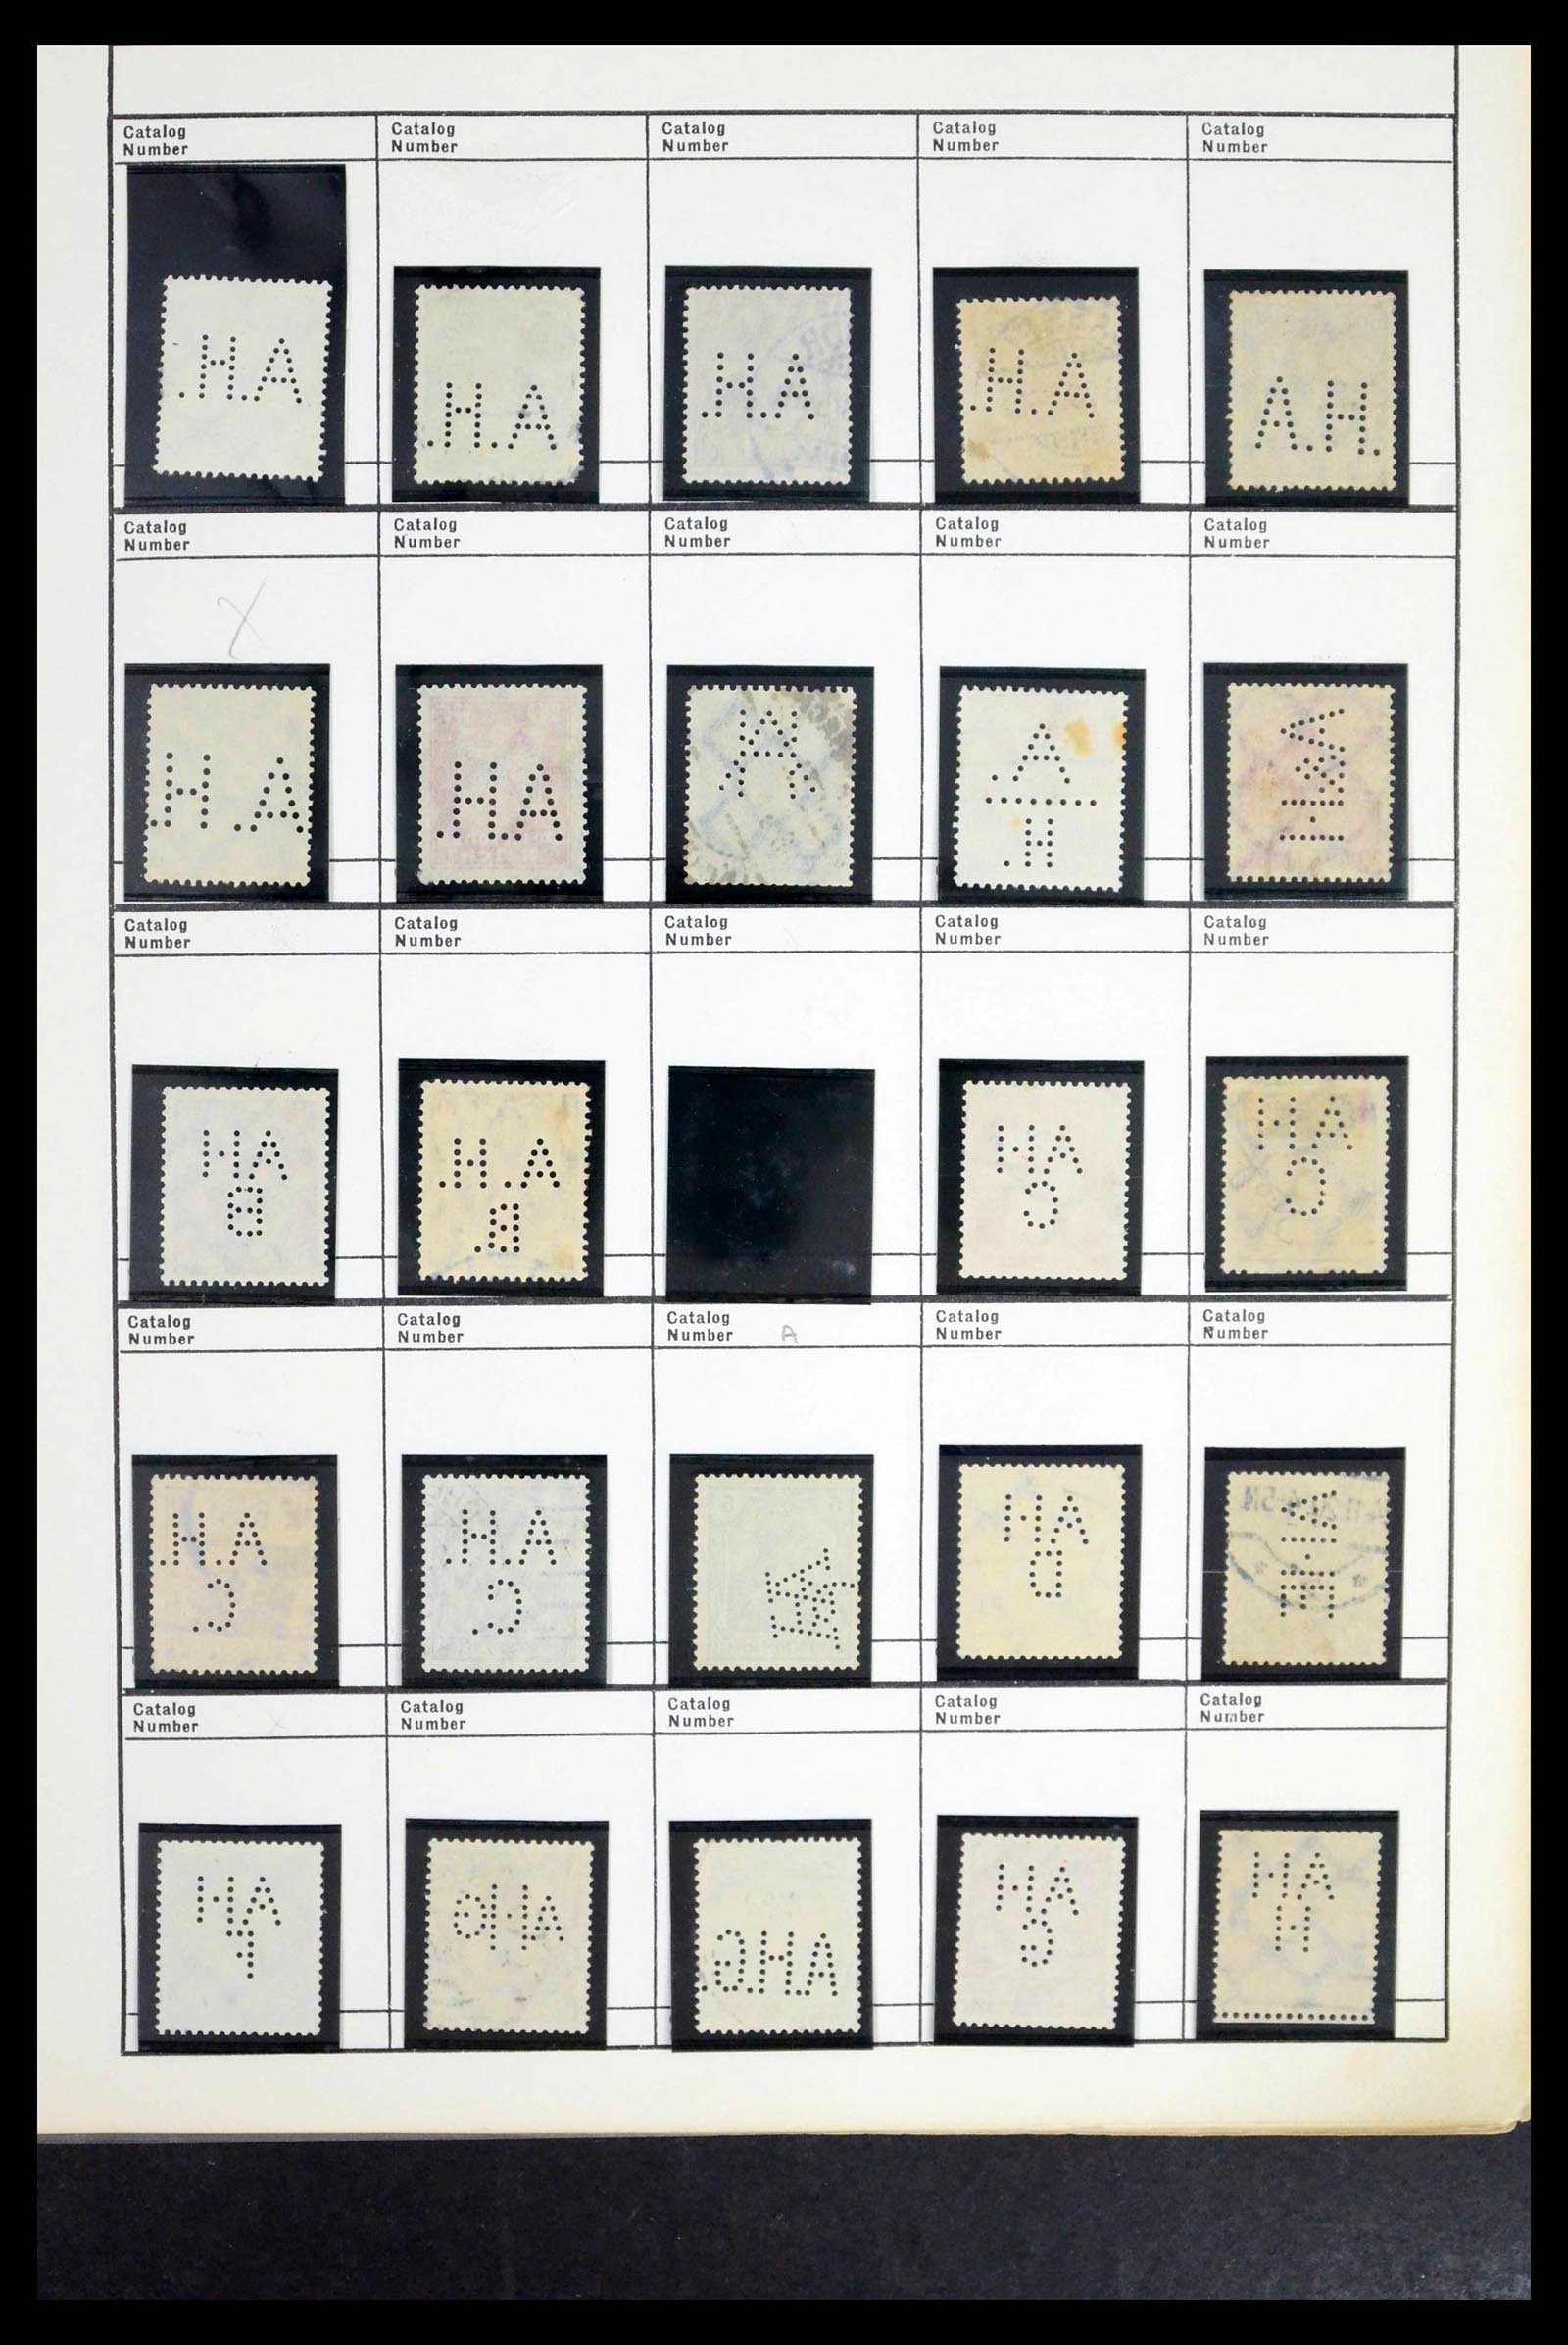 Catalog Number Catalog Number Catalog Number Catalog Number Catalog Number
.H.A .H.A .H.A .H.A A.H.
Catalog Number Catalog Number Catalog Number Catalog Number Catalog Number
X
.H .A .H.A A. H.
Catalog Number Catalog Number Catalog Number Catalog Number Catalog Number
HA B .H.A .B HA C HA C
Catalog Number Catalog Number Catalog Number A Catalog Number Catalog Number
.H.A .C .H.A .C HA D
Catalog Number X Catalog Number Catalog Number Catalog Number Catalog Number
HA F GHA .G.H.A HA G HA H